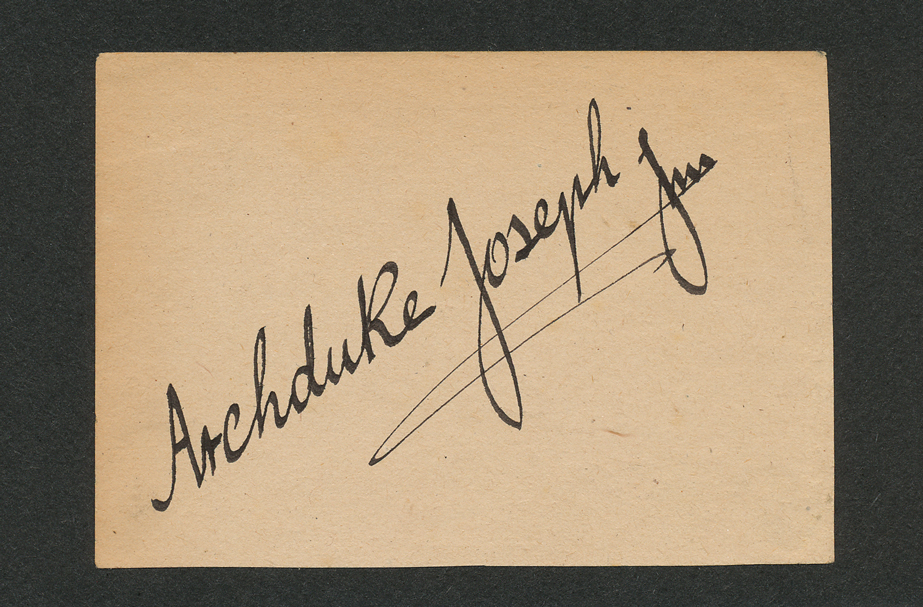 Archduke Joseph Jun